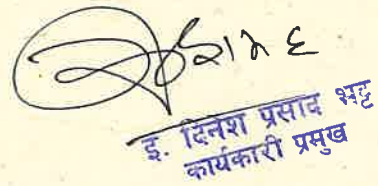 इ. दिनेश प्रसाद भट्ट
कार्यकारी प्रमुख